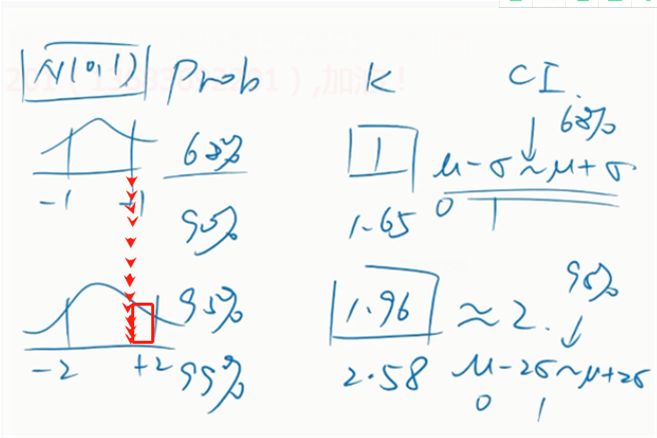 N(0,1) Prob K CI
68% 1 68%
μ-σ~μ+σ
-1 +1 0 1
90% 1.65
95% 1.96 ≈2. 95%
-2 +2 99% 2.58 μ-2σ~μ+2σ
0 1